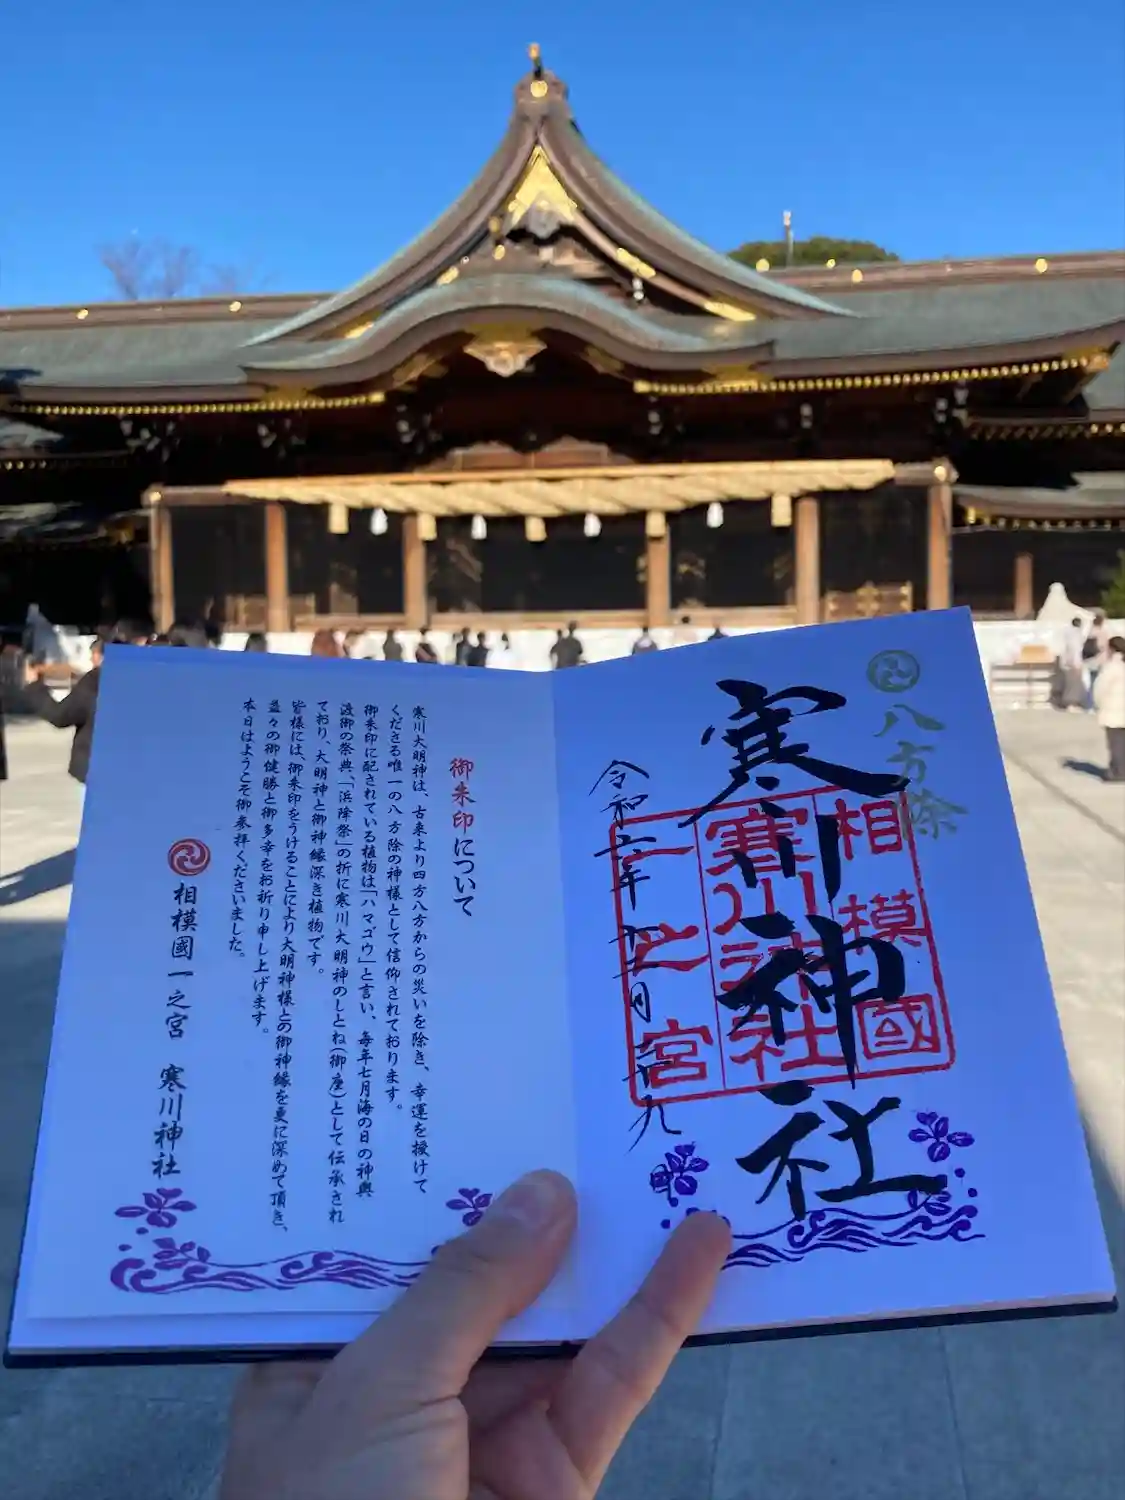 八方除
寒川神社
相模國
寒川神社
一之宮
令和六年十二月二十九
御朱印について
寒川大明神は、古来より四方八方からの災いを除き、幸運を授けて
くださる唯一の八方除の神様として信仰されております。
御朱印に配されている植物は「ハマゴウ」と言い、毎年七月海の日の神輿
渡御の祭典、「浜降祭」の折に寒川大明神のしとね(御座)として伝承され
ており、大明神と御神縁深き植物です。
皆様には、御朱印をうけることにより大明神様との御神縁を更に深めて頂き、
益々の御健勝と御多幸をお祈り申し上げます。
本日はようこそ御参拝くださいました。
相模國一之宮 寒川神社